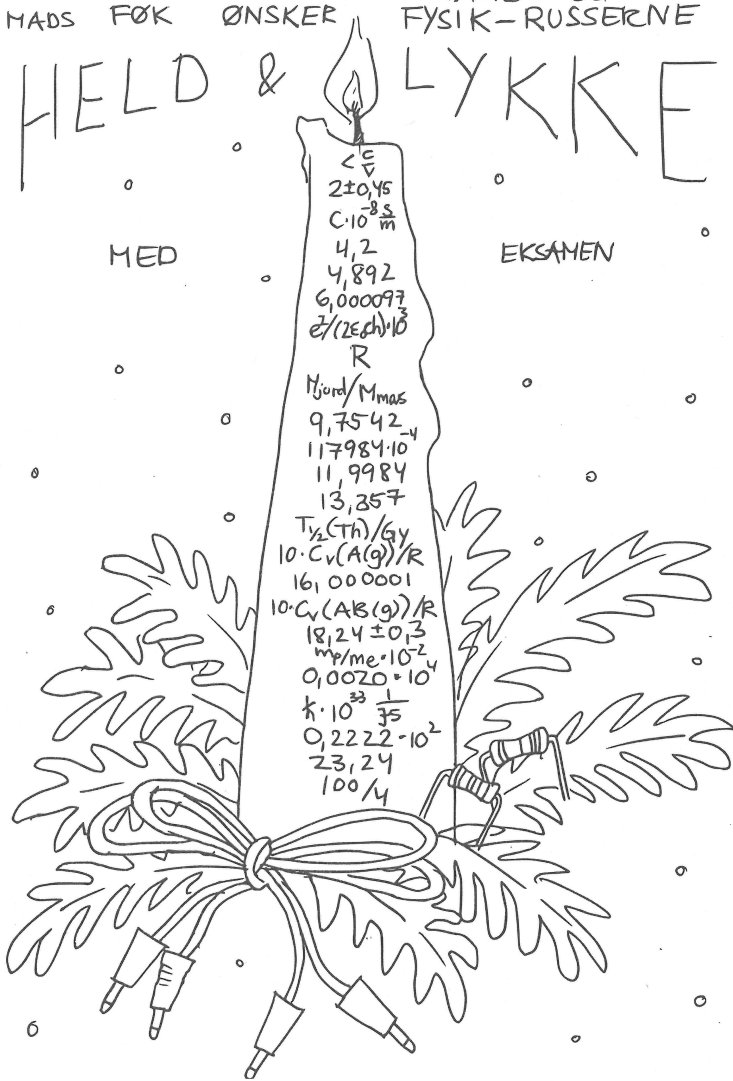 MADS FØK ØNSKER FYSIK-RUSSERNE
HELD & LYKKE
MED EKSAMEN
< c/v
2±0,45
C·10⁻⁸ s/m
4,2
4,892
6,000097
e²/(2ε₀ch)·10³
R
Mjord/Mmas
9,7542
117984·10⁻⁴
11,9984
13,357
T½(Th)/Gy
10·Cᵥ(A(g))/R
16,000001
10·Cᵥ(AB(g))/R
18,24±0,3
mp/me·10⁻²
0,0020·10⁴
ħ·10³³ 1/Js
0,2222·10²
23,24
100/4